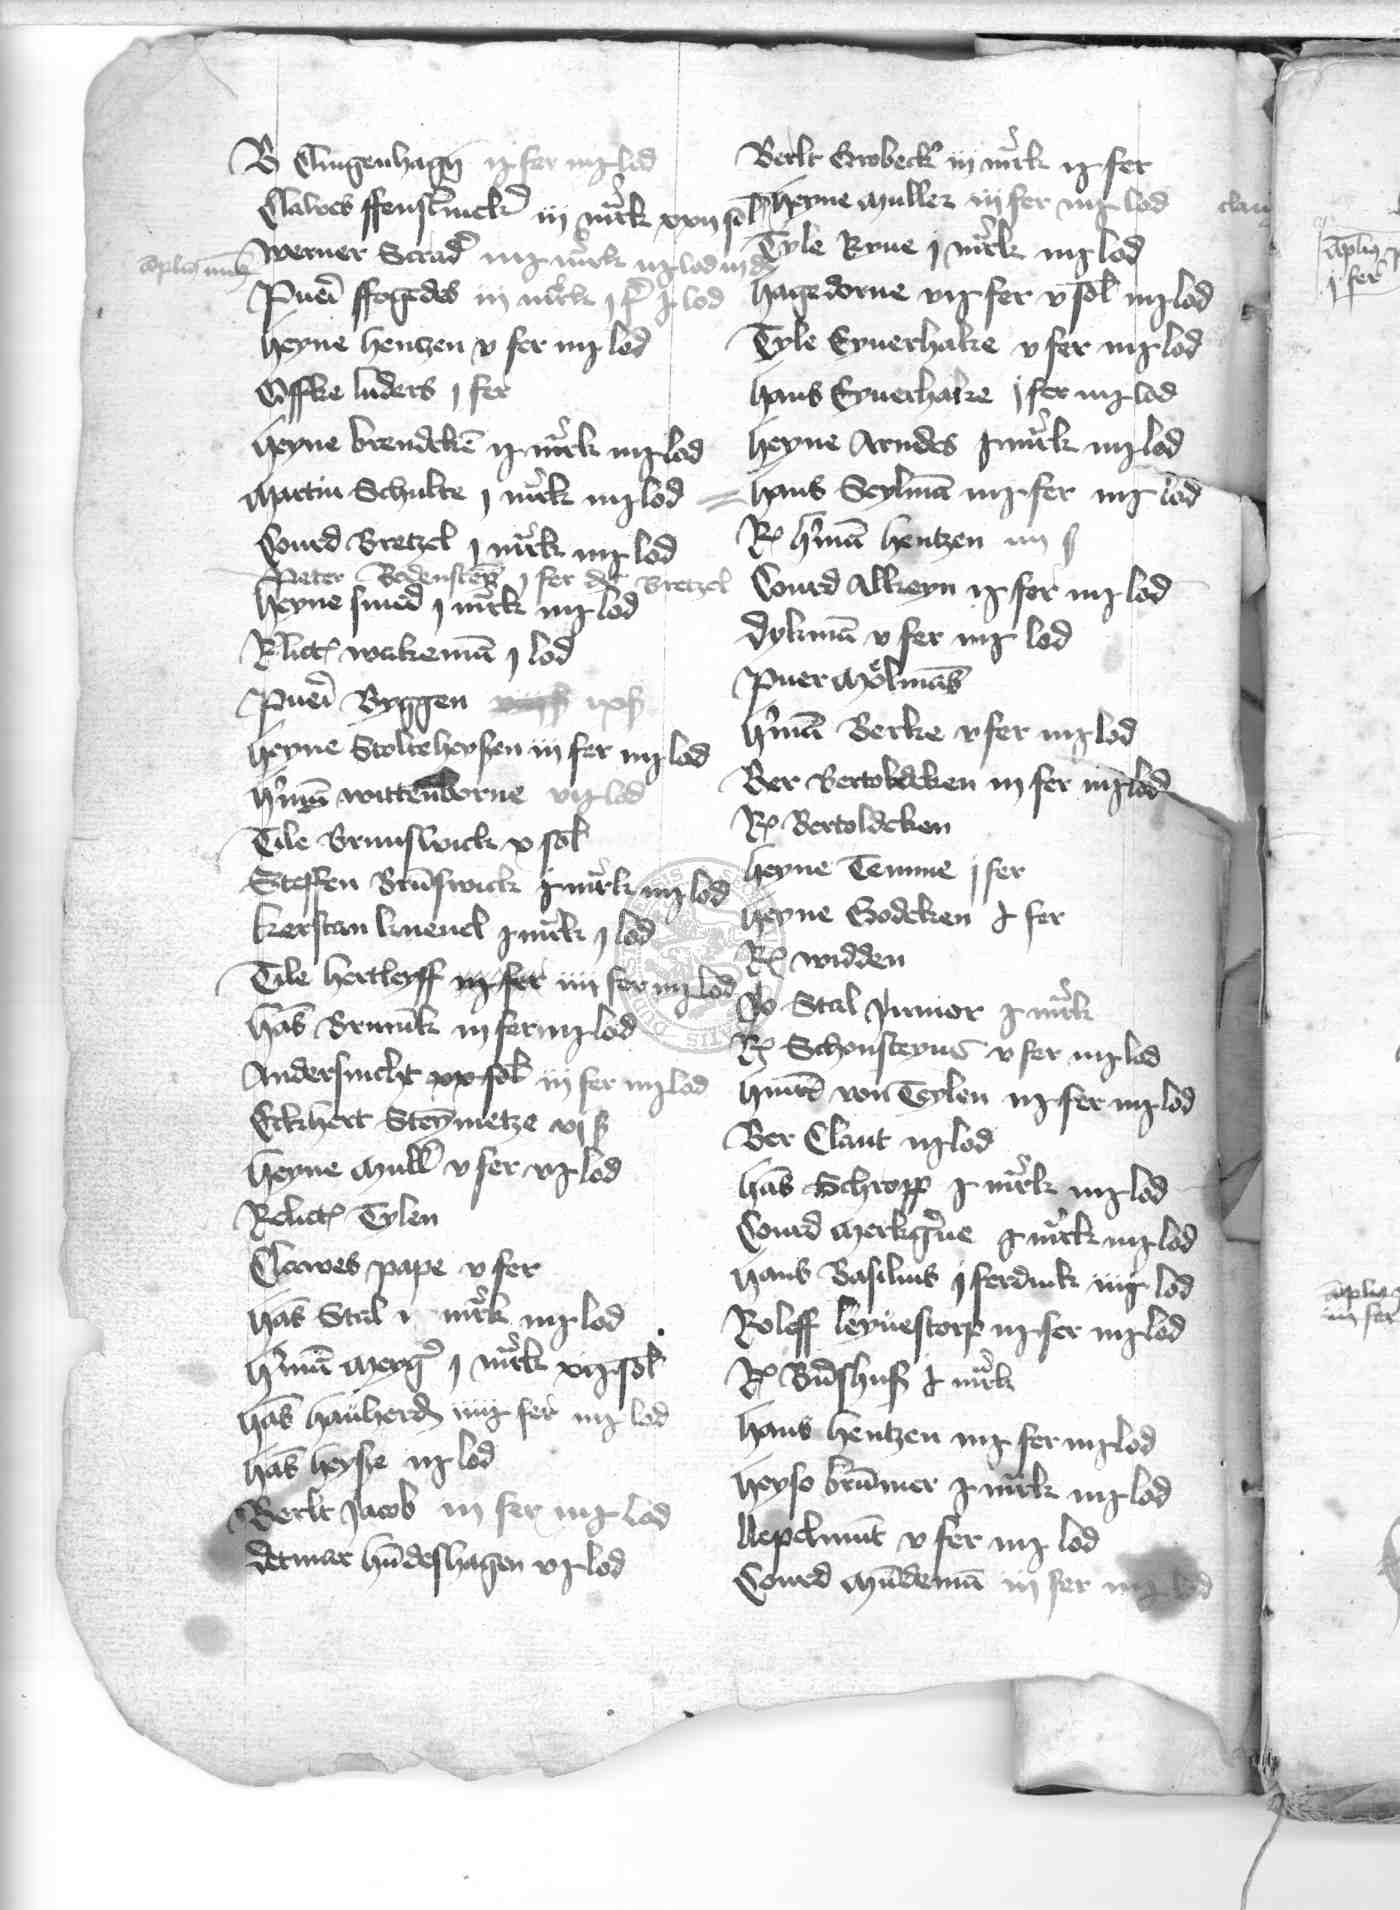 B Clingenhagen ij fer iiij lod
Clawes ffensternickr iij mrk xxij sol
Werner Scrad iiij mrk iij lod
amplius
Pueri ffogedes iij mrk j f j lod
heyne hentzen v fer iiij lod
Ciffke luders j fer
heyne brendeken ij mrk iiij lod
Martin Schulte j mrk iiij lod
Conrd Bretzel j mrk iiij lod
Peter Bodensten j fer dt Bretzel
heyne smed j mrk iiij lod
Relict wakeman j lod
Pueri Byggen ix ß
heyne Stolteheysen iij fer iiij lod
hman wittenborne vij lod
Tile Brunswick x sol
Steffen Brunswick j mrk iiij lod
kerstan knenel j mrk j lod
Tile hertleyff iij fer iiij fer iiij lod
hans Brunnk iij fer iiij lod
Andersnicht xx sol iij fer iiij lod
Eckhert Steynmetze vj ß
heyne Mull v fer vij lod
Relict Tylen
Clawes pape v fer
hans Stal j mrk iiij lod
hman Meyg j mrk xij sol
hans hauherd iiij fer iiij lod
hans heyse iij lod
Berlt Jacob iij fer iiij lod
detmar hundeshagen vj lod
Berlt Grobeck iij mrk ij fer
heyne Muller iiij fer iiij lod
Tyle Ryne j mrk iiij lod
hagedorne vij fer v sol iiij lod
Tyle Eynerhake v fer iiij lod
hans Eynerhake j fer iiij lod
heyne Arndes j mrk iiij lod
hans Seylman iiij fer iiij lod
R hman hentzen iiij ß
Conrd Alkeyn ij fer iiij lod
dykman v fer iiij lod
Puer Molmans
hman Berke v fer iiij lod
Ber Bertoldeken iij fer iiij lod
R Bertoldeken
heyne Temme j fer
heyne Godeken j fer
R widden
Jo Stal Junior j mrk
R Schonsteyns v fer iiij lod
hinrik von Teylen iij fer iiij lod
Ber Clant iij lod
hans Schropp j mrk iiij lod
Conrd Merkgrue j mrk iiij lod
hans Basilius j ferdink iiij lod
Roleff leyuestorp iij fer iiij lod
R Bundshuß j mrk
hans hentzen iiij fer iiij lod
heyso brunner j mrk iiij lod
Nepelmunt v fer iiij lod
Conrd Mundeman iij fer iiij lod
clau
amplius
j fer
amplius
iiij fer